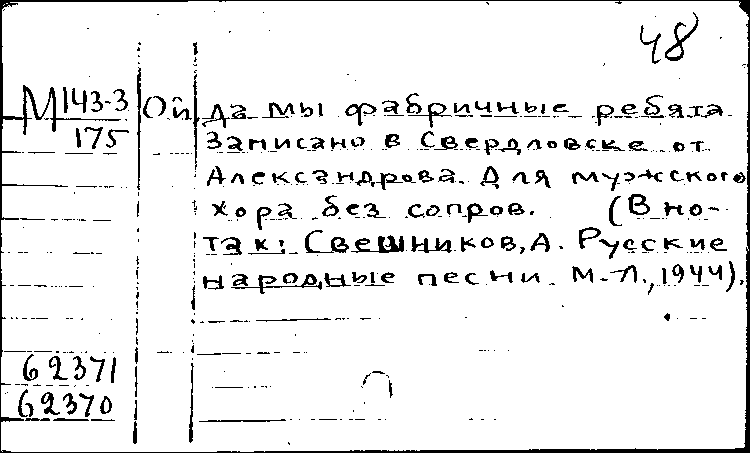 48
М 143-3
175
Ой, да мы фабричные ребята
Записано в Свердловске от
Александрова. Для мужского
хора без сопров. (В но-
тах: Свешников, А. Русские
народные песни. М.-Л., 1944).
62371
62370